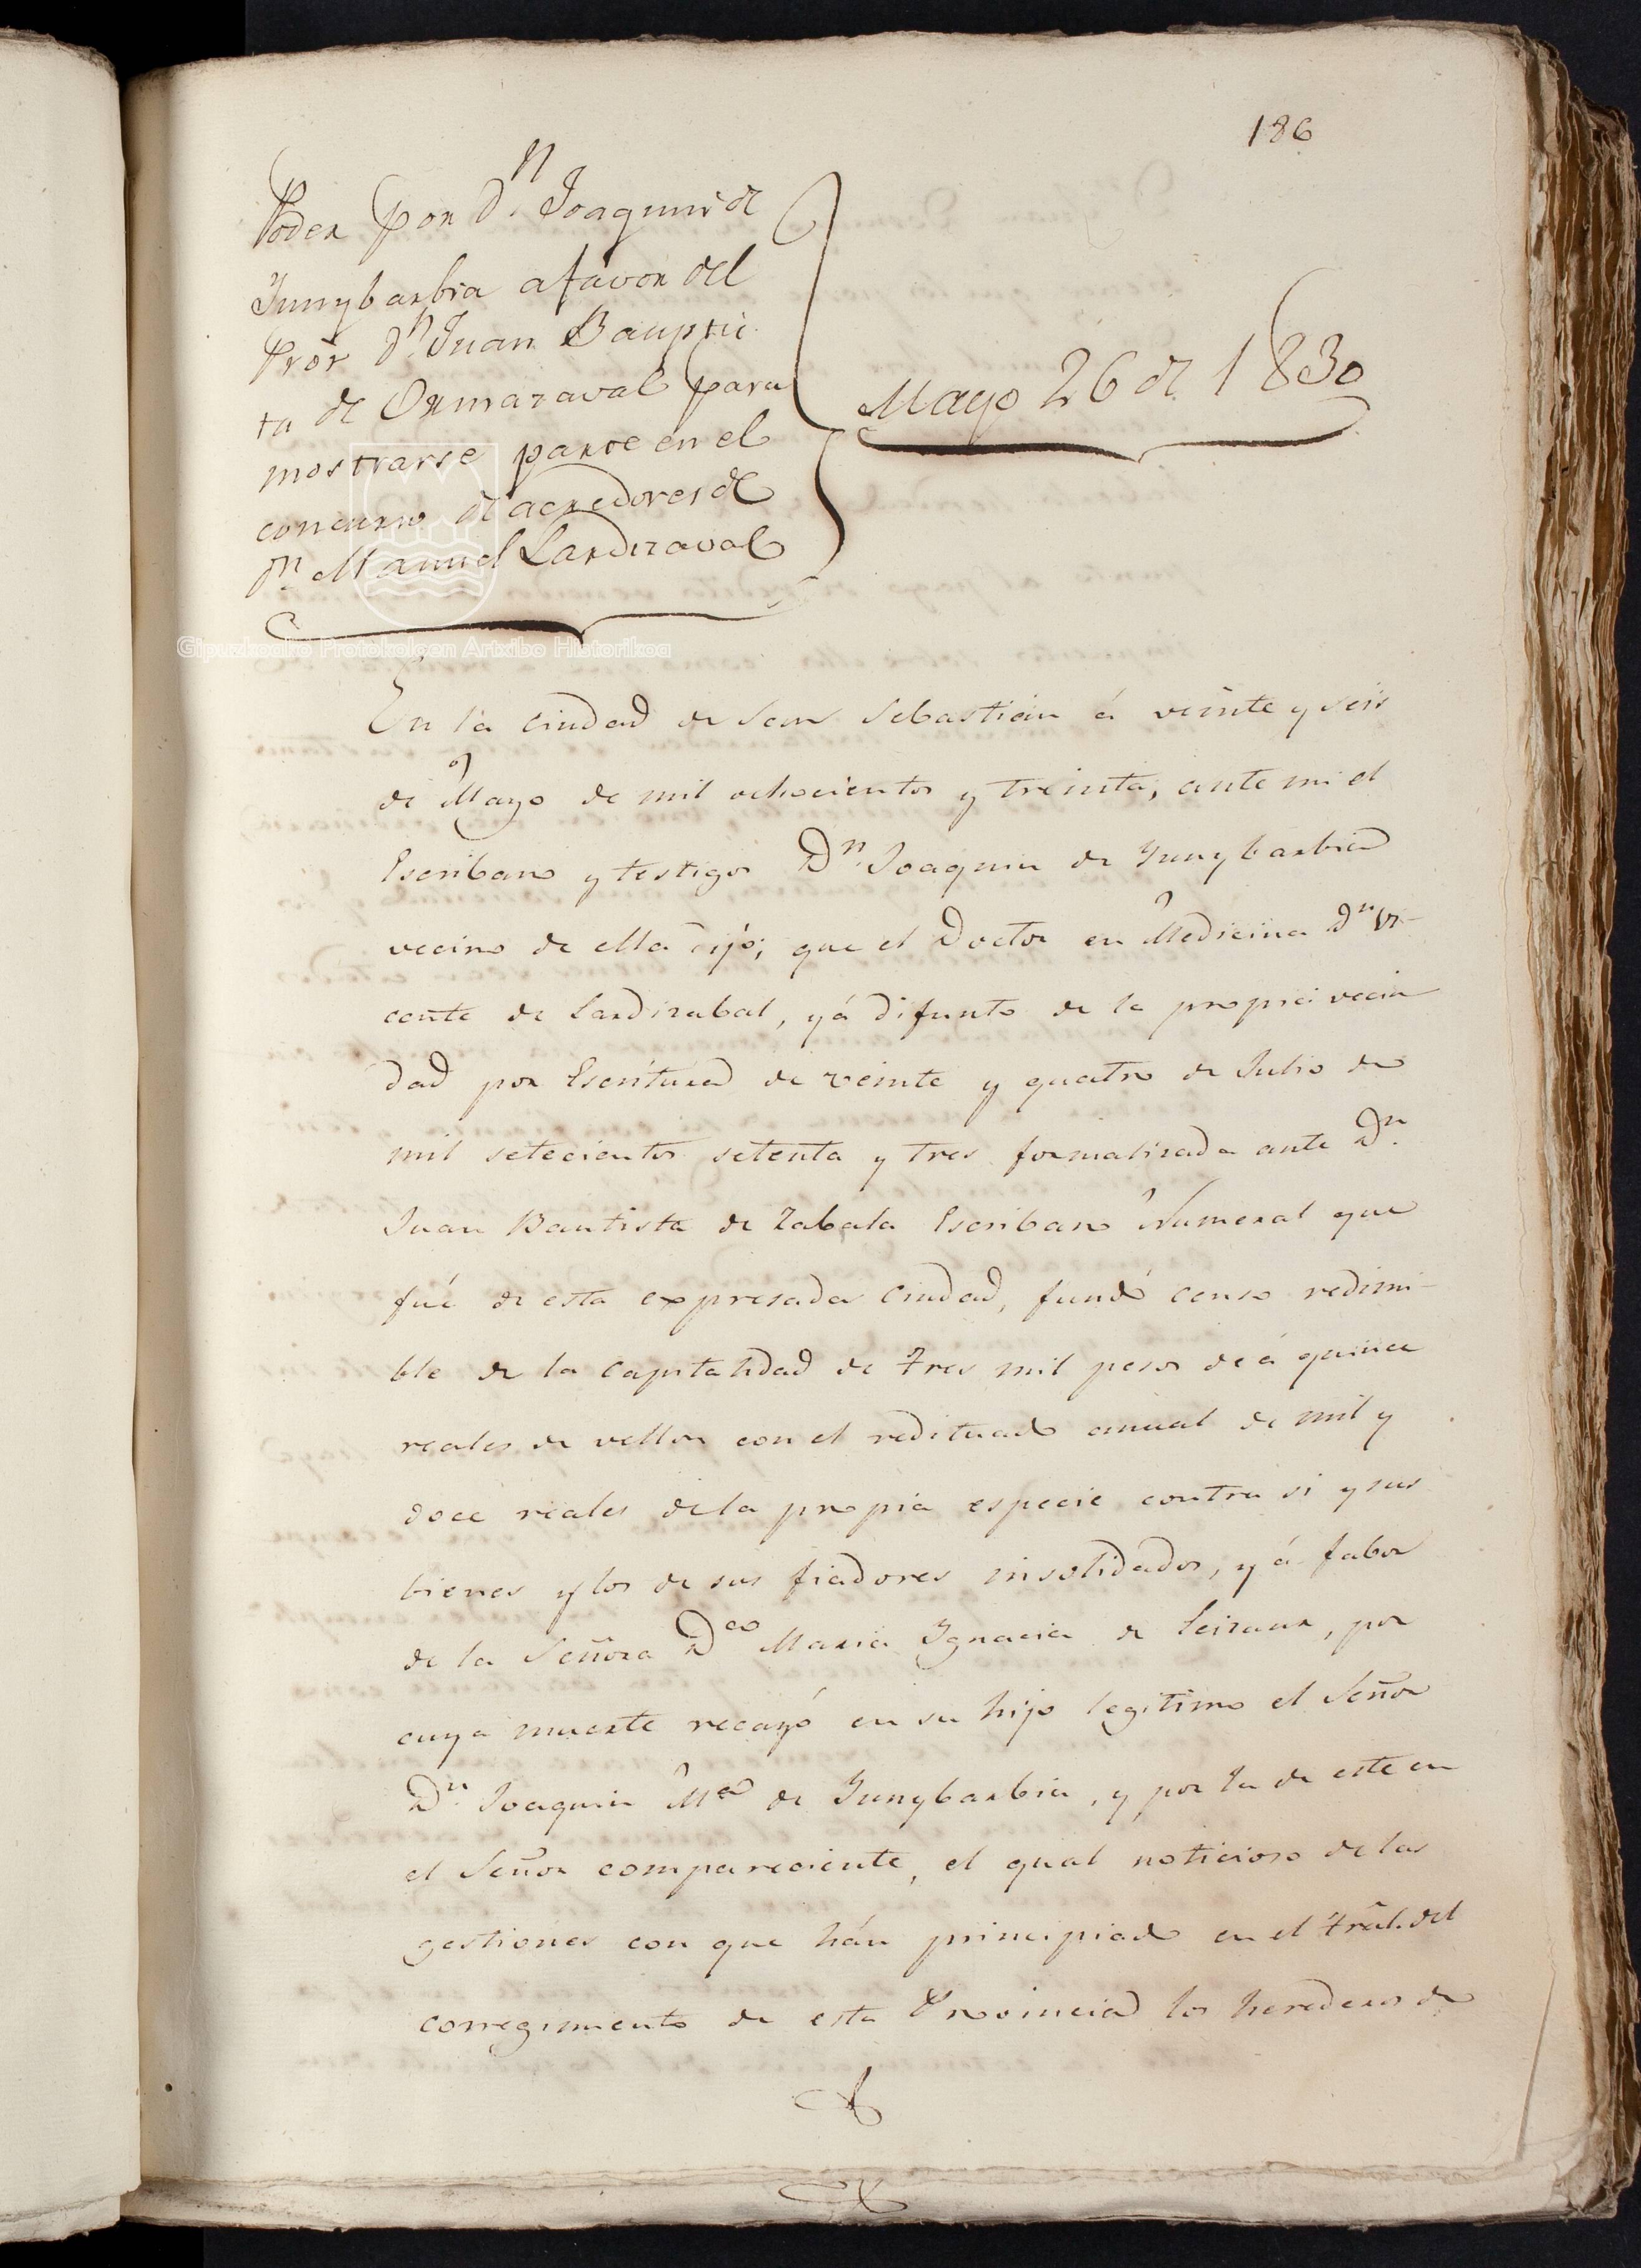 186
Poder por Dn. Joaquin de
Yunybarbia a favor del
Pror Dn. Juan Bauptis
ta de Ormazaval para
mostrarse parte en el
concurso de acredores de
Dn. Manuel Lardizaval
Mayo 26 de 1830
Gipuzkoako Protokoloen Artxibo Historikoa
En la ciudad de San Sebastián á veinte y seis
de Mayo de mil ochocientos y treinta, ante mi el
Escribano y testigos Dn. Joaquin de Yunybarbia
vecino de ella dijo; que el Doctor en Medicina Dn. Vi-
cente de Lardizabal, yá difunto de la propia vecin
dad por Escritura de veinte y quatro de Julio de
mil setecientos setenta y tres formalizada ante Dn.
Juan Bautista de Zabala Escribano Numeral que
fué de esta expresada Ciudad, fundó censo redimi-
ble de la capitalidad de tres mil pesos de á quince
reales de vellon con el redituado anual de mil y
doce reales de la propia especie contra si y sus
bienes y los de sus fiadores insolidados, y á fabor
de la Señora Da Maria Ygnacia de Leizaur, por
cuya muerte recayó en su hijo legitimo el Señor
Dn. Joaquin Ma de Yunybarbia, y por la de este en
el Señor compareciente, el qual noticioso de las
gestiones con que hán principiado en el tral. del
corregimiento de esta Provincia los herederos de